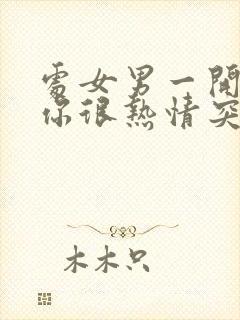 處女男一開
你很熱情突
木木只